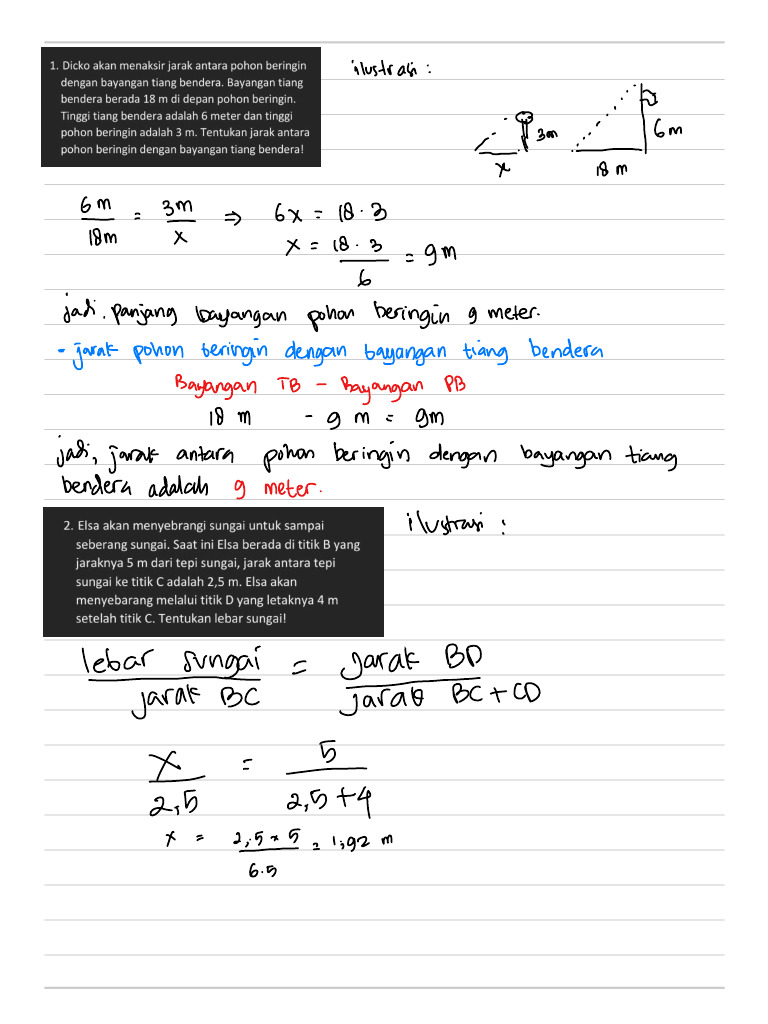 1. Dicko akan menaksir jarak antara pohon beringin
dengan bayangan tiang bendera. Bayangan tiang
bendera berada 18 m di depan pohon beringin.
Tinggi tiang bendera adalah 6 meter dan tinggi
pohon beringin adalah 3 m. Tentukan jarak antara
pohon beringin dengan bayangan tiang bendera!
ilustrasi :
3m
x
6m
18 m
6m/18m = 3m/x ⇒ 6x = 18 · 3
x = 18 · 3/6 = 9m
jadi. panjang bayangan pohon beringin 9 meter.
- jarak pohon beringin dengan bayangan tiang bendera
Bayangan TB - Bayangan PB
18 m - 9 m = 9m
jadi, jarak antara pohon beringin dengan bayangan tiang
bendera adalah 9 meter.
2. Elsa akan menyebrangi sungai untuk sampai
seberang sungai. Saat ini Elsa berada di titik B yang
jaraknya 5 m dari tepi sungai, jarak antara tepi
sungai ke titik C adalah 2,5 m. Elsa akan
menyebarang melalui titik D yang letaknya 4 m
setelah titik C. Tentukan lebar sungai!
ilustrasi :
lebar sungai/jarak BC = jarak BD/jarak BC + CD
x/2,5 = 5/2,5 + 4
x = 2,5 × 5/6.5 = 1,92 m